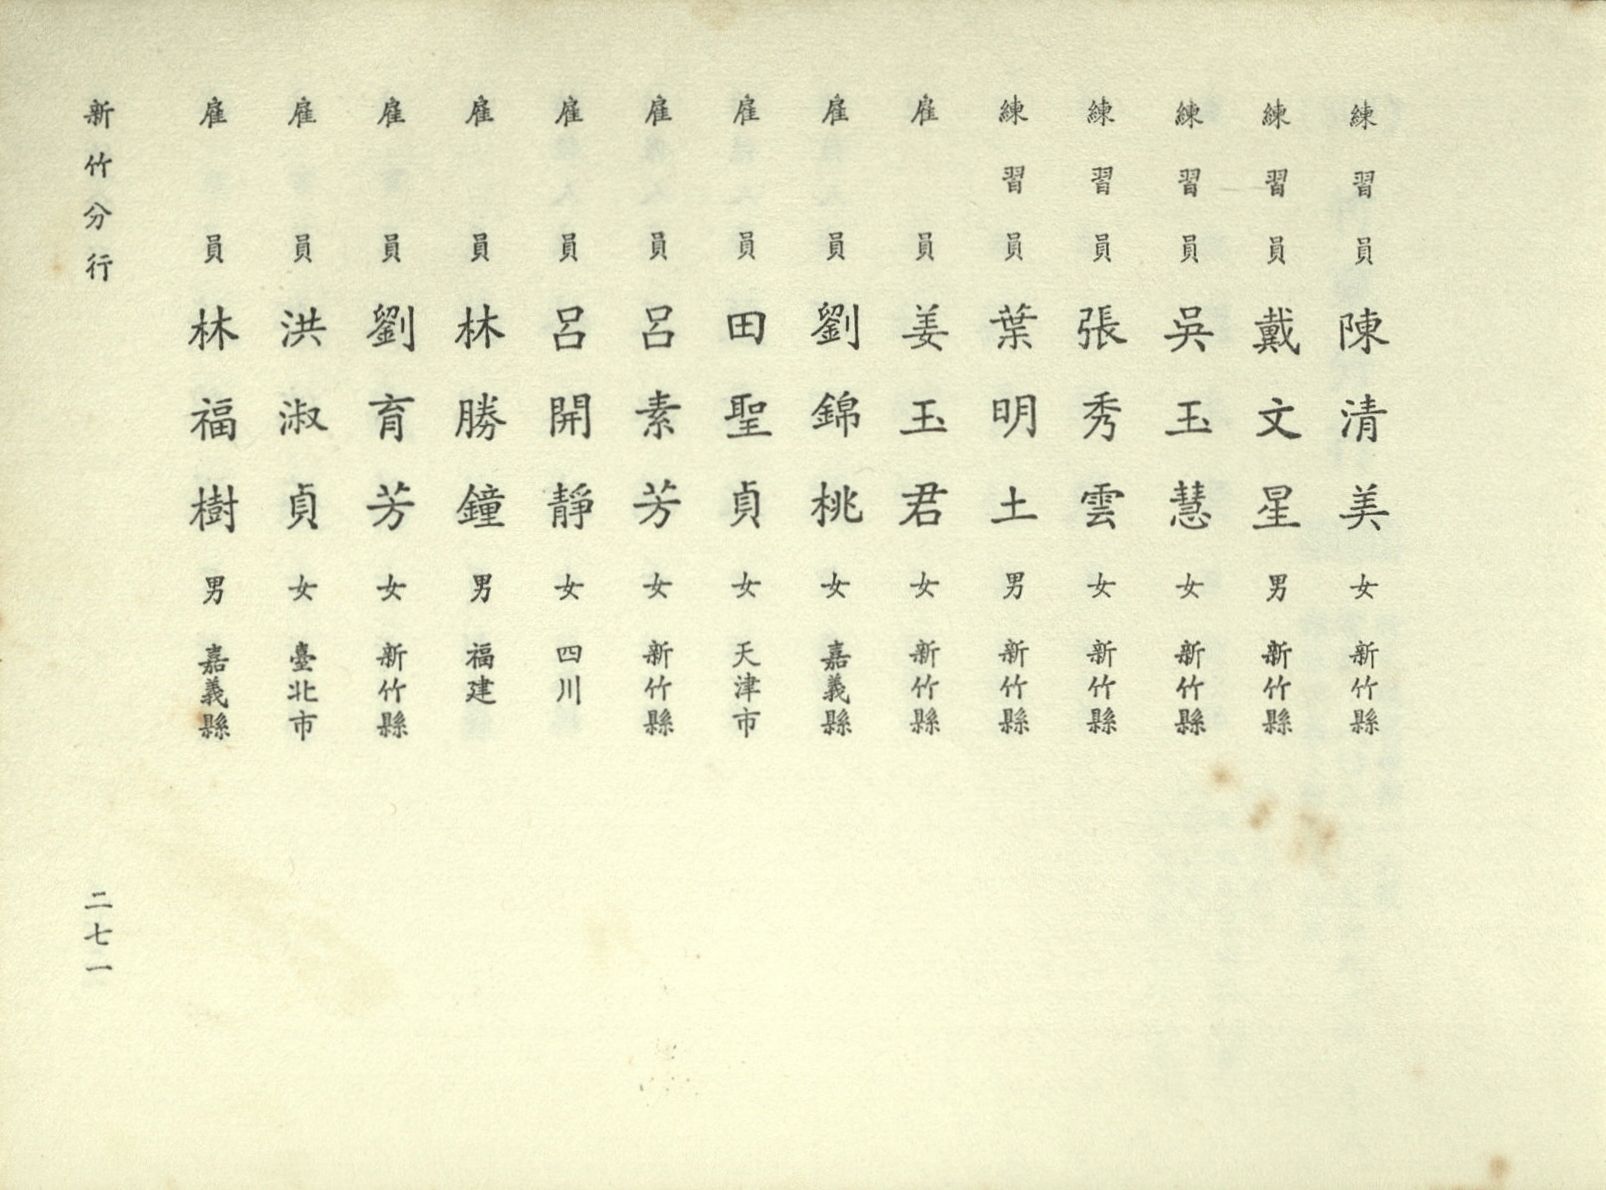 練習員 陳清美 女 新竹縣
練習員 戴文星 男 新竹縣
練習員 吳玉慧 女 新竹縣
練習員 張秀雲 女 新竹縣
練習員 葉明土 男 新竹縣
雇員 姜玉君 女 新竹縣
雇員 劉錦桃 女 嘉義縣
雇員 田聖貞 女 天津市
雇員 呂素芳 女 新竹縣
雇員 呂開靜 女 四川
雇員 林勝鐘 男 福建
雇員 劉育芳 女 新竹縣
雇員 洪淑貞 女 臺北市
雇員 林福樹 男 嘉義縣
新竹分行
二七一